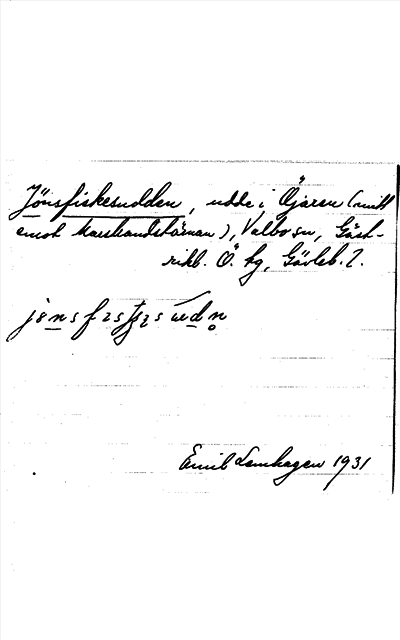 Jönsfiskesudden, udde i Öjaren (mitt
emot Marstrandstärnan), Valbo sn, Gäst-
rikl. Ö. tg, Gävleb. l.
Emil Lemhagen 1931